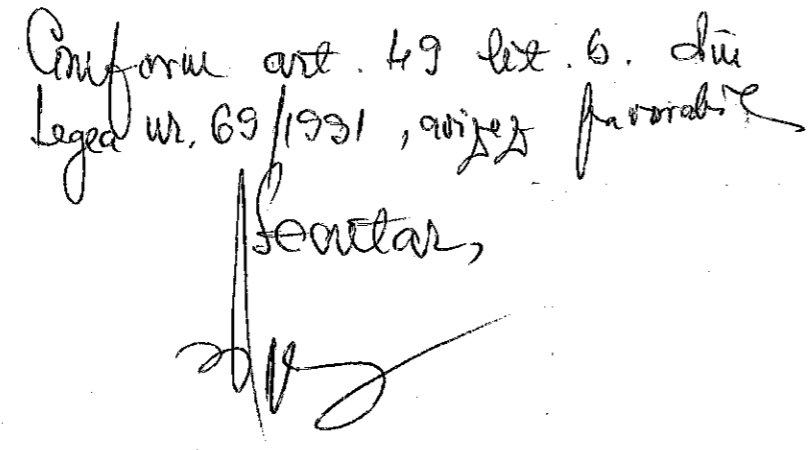 Conform art. 49 lit. b. din
Legea nr. 69/1991, avizez favorabil
Secretar,